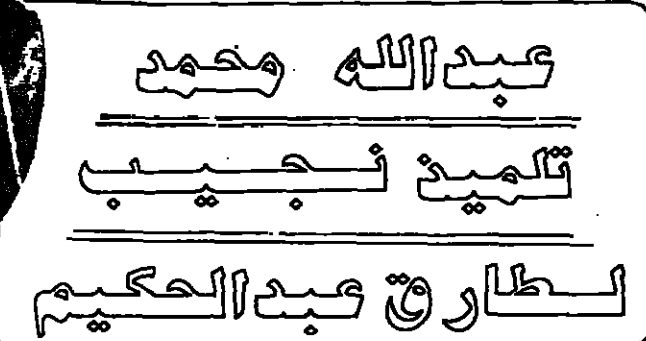 عبدالله محمد
تلميذ نجيب
لطارق عبدالحكيم